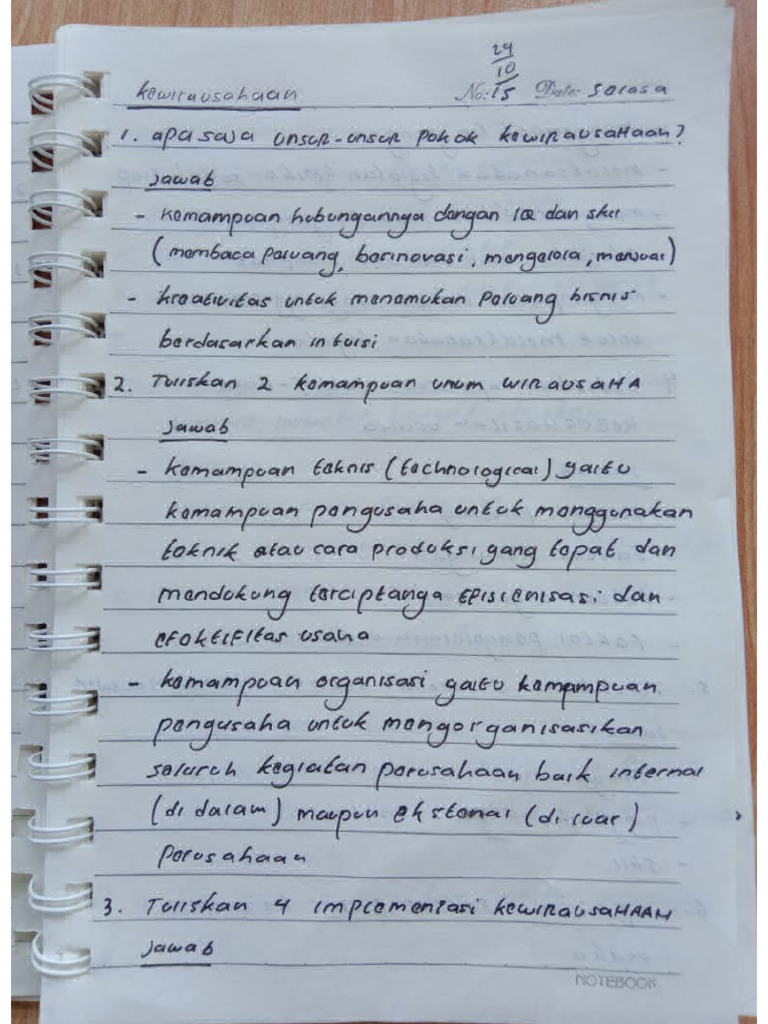 29
10
No: 15 Date: Selasa
Kewirausahaan
1. apa saja unsur-unsur pokok kewirausahaan?
Jawab
- Kemampuan hubungannya dengan IQ dan skil
(membaca peluang, berinovasi, mengelola, menjual)
- kreativitas untuk menemukan peluang bisnis
berdasarkan intuisi
2. Tuliskan 2 kemampuan umum wirausaha
Jawab
- kemampuan teknis (technological) yaitu
kemampuan pengusaha untuk menggunakan
teknik atau cara produksi yang tepat dan
mendukung terciptanya episienisasi dan
efektifitas usaha
- kemampuan organisasi yaitu kemampuan
pengusaha untuk mengorganisasikan
seluruh kegiatan perusahaan baik internal
(di dalam) maupun eksternal (di luar)
perusahaan
3. Tuliskan 4 implementasi kewirausahaan
Jawab
NOTEBOOK